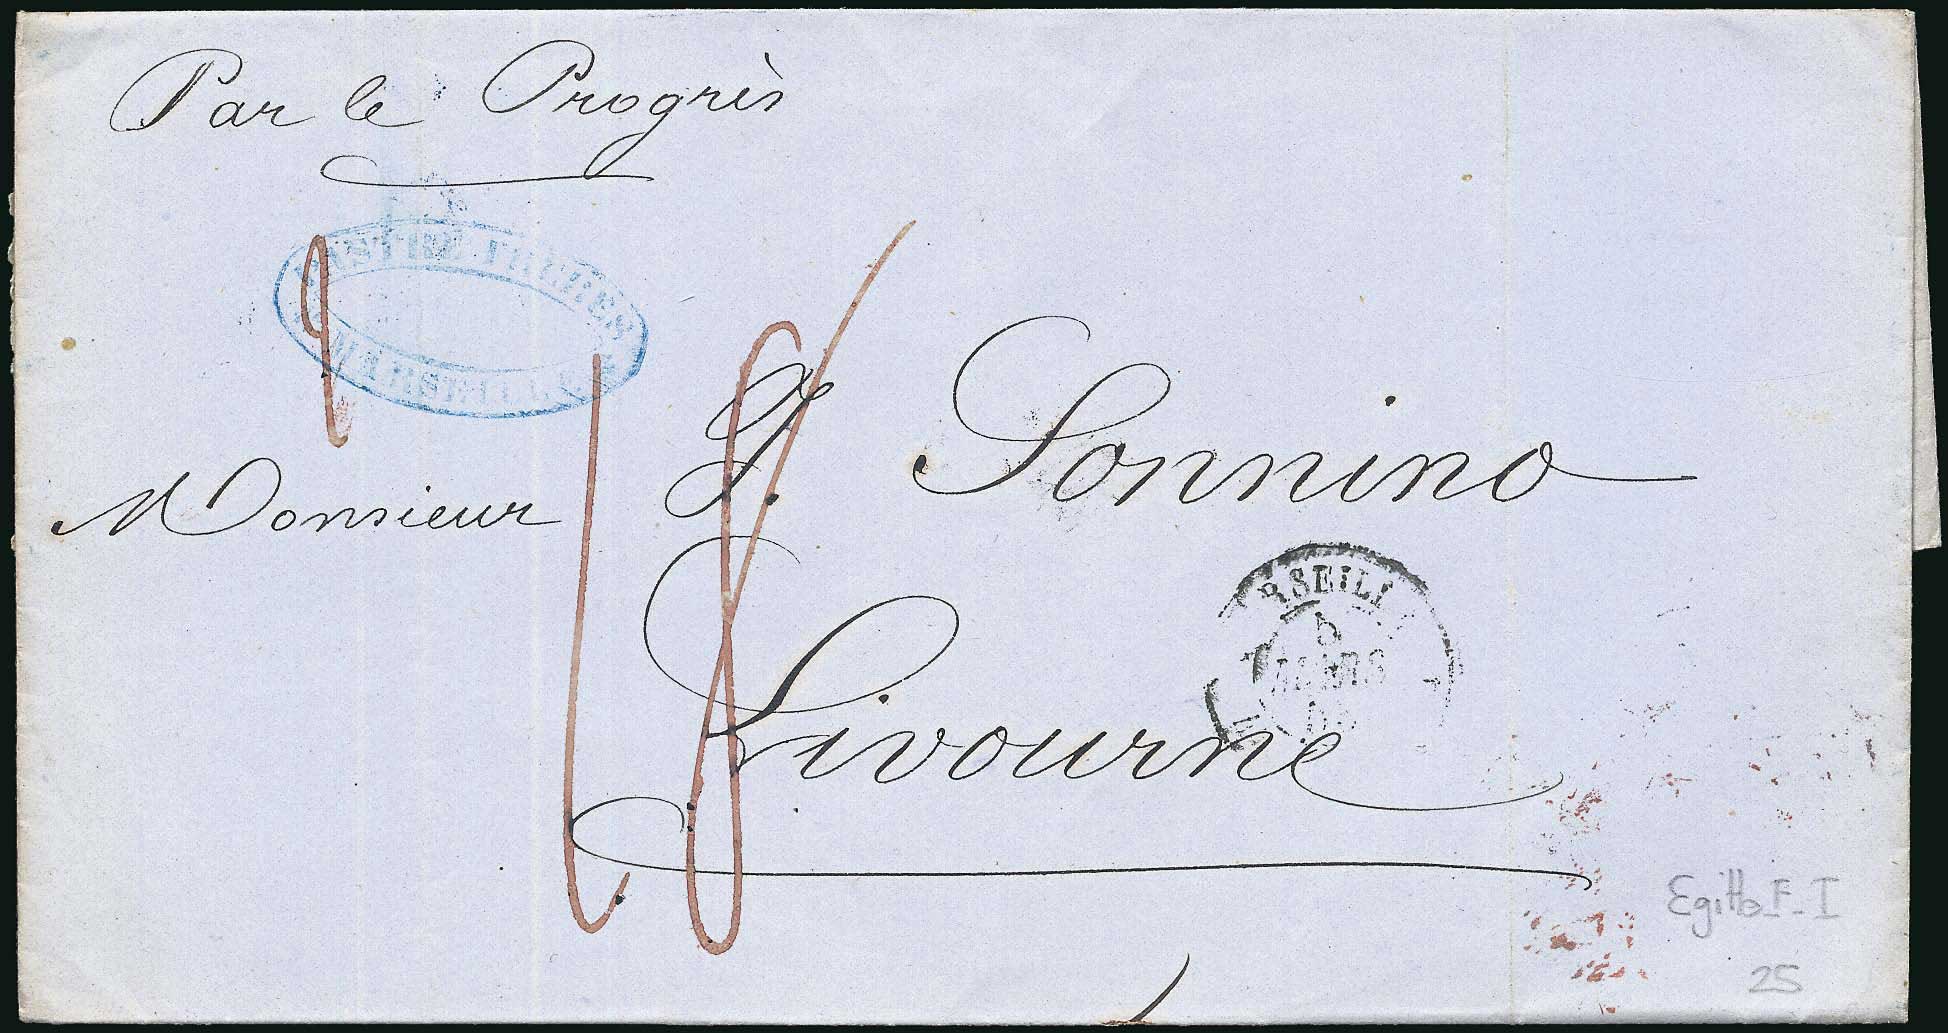 Par le Progrès
PASTRÉ FRÈRES
MARSEILLE
Monsieur J. Sonnino
Livourne
18
MARSEILLE
5
MARS
Egitto_F_I
25